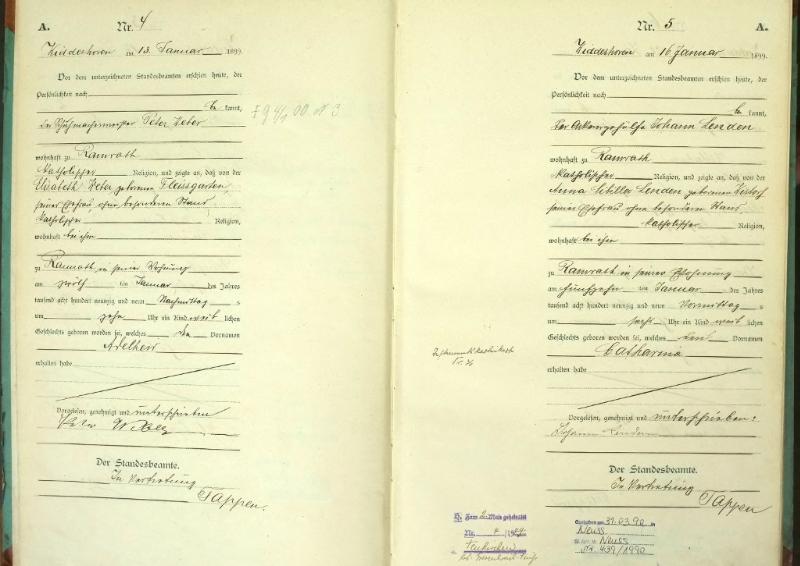 A.
Nr. 4
am 13. Januar 1899.
Vor dem unterzeichneten Standesbeamten erschien heute, der
Persönlichkeit nach
be kannt,
der Schuhmachermeister Peter Weber
wohnhaft zu Ramrath
katholischer Religion, und zeigte an, daß von der
Elisabeth Weber geborenen Fleussgarten,
seiner Ehefrau, ohne besonderen Stand
katholischer Religion,
wohnhaft bei ihm
zu Ramrath in seiner Wohnung
am zwölf ten Januar des Jahres
tausend acht hundert neunzig und neun Nachmittag s
um zehn Uhr ein Kind weib lichen
Geschlechts geboren worden sei, welches den Vornamen
Adelheid
erhalten habe
Vorgelesen, genehmigt und unterschrieben
Peter Weber
Der Standesbeamte.
In Vertretung
Tappen.
Nr. 5
A.
am 16 Januar 1899.
Vor dem unterzeichneten Standesbeamten erschien heute, der
Persönlichkeit nach
be kannt,
der Ackergehülfe Johann Lenden
wohnhaft zu Ramrath
katholischer Religion, und zeigte an, daß von der
Anna Sibilla Lenden geborenen
seiner Ehefrau ohne besonderen Stand
katholischer Religion,
wohnhaft bei ihm
zu Ramrath in seiner Wohnung
am fünfzehn ten Januar des Jahres
tausend acht hundert neunzig und neun Vormittag s
um sechs Uhr ein Kind weib lichen
Geschlechts geboren worden sei, welches den Vornamen
Catharina
erhalten habe
Vorgelesen, genehmigt und unterschrieben:
Johann Lenden
Der Standesbeamte.
In Vertretung
Tappen
Zum 2. Male geheiratet
Nr.
Gestorben am 31.03.90 in
Neuss.
Neuss
Nr. 439/1990